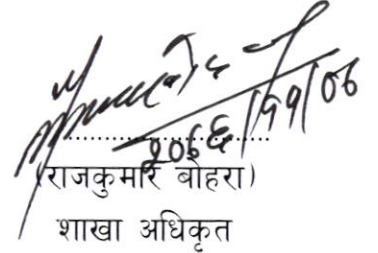 २०६६/११/०६
(राजकुमार बोहरा)
शाखा अधिकृत